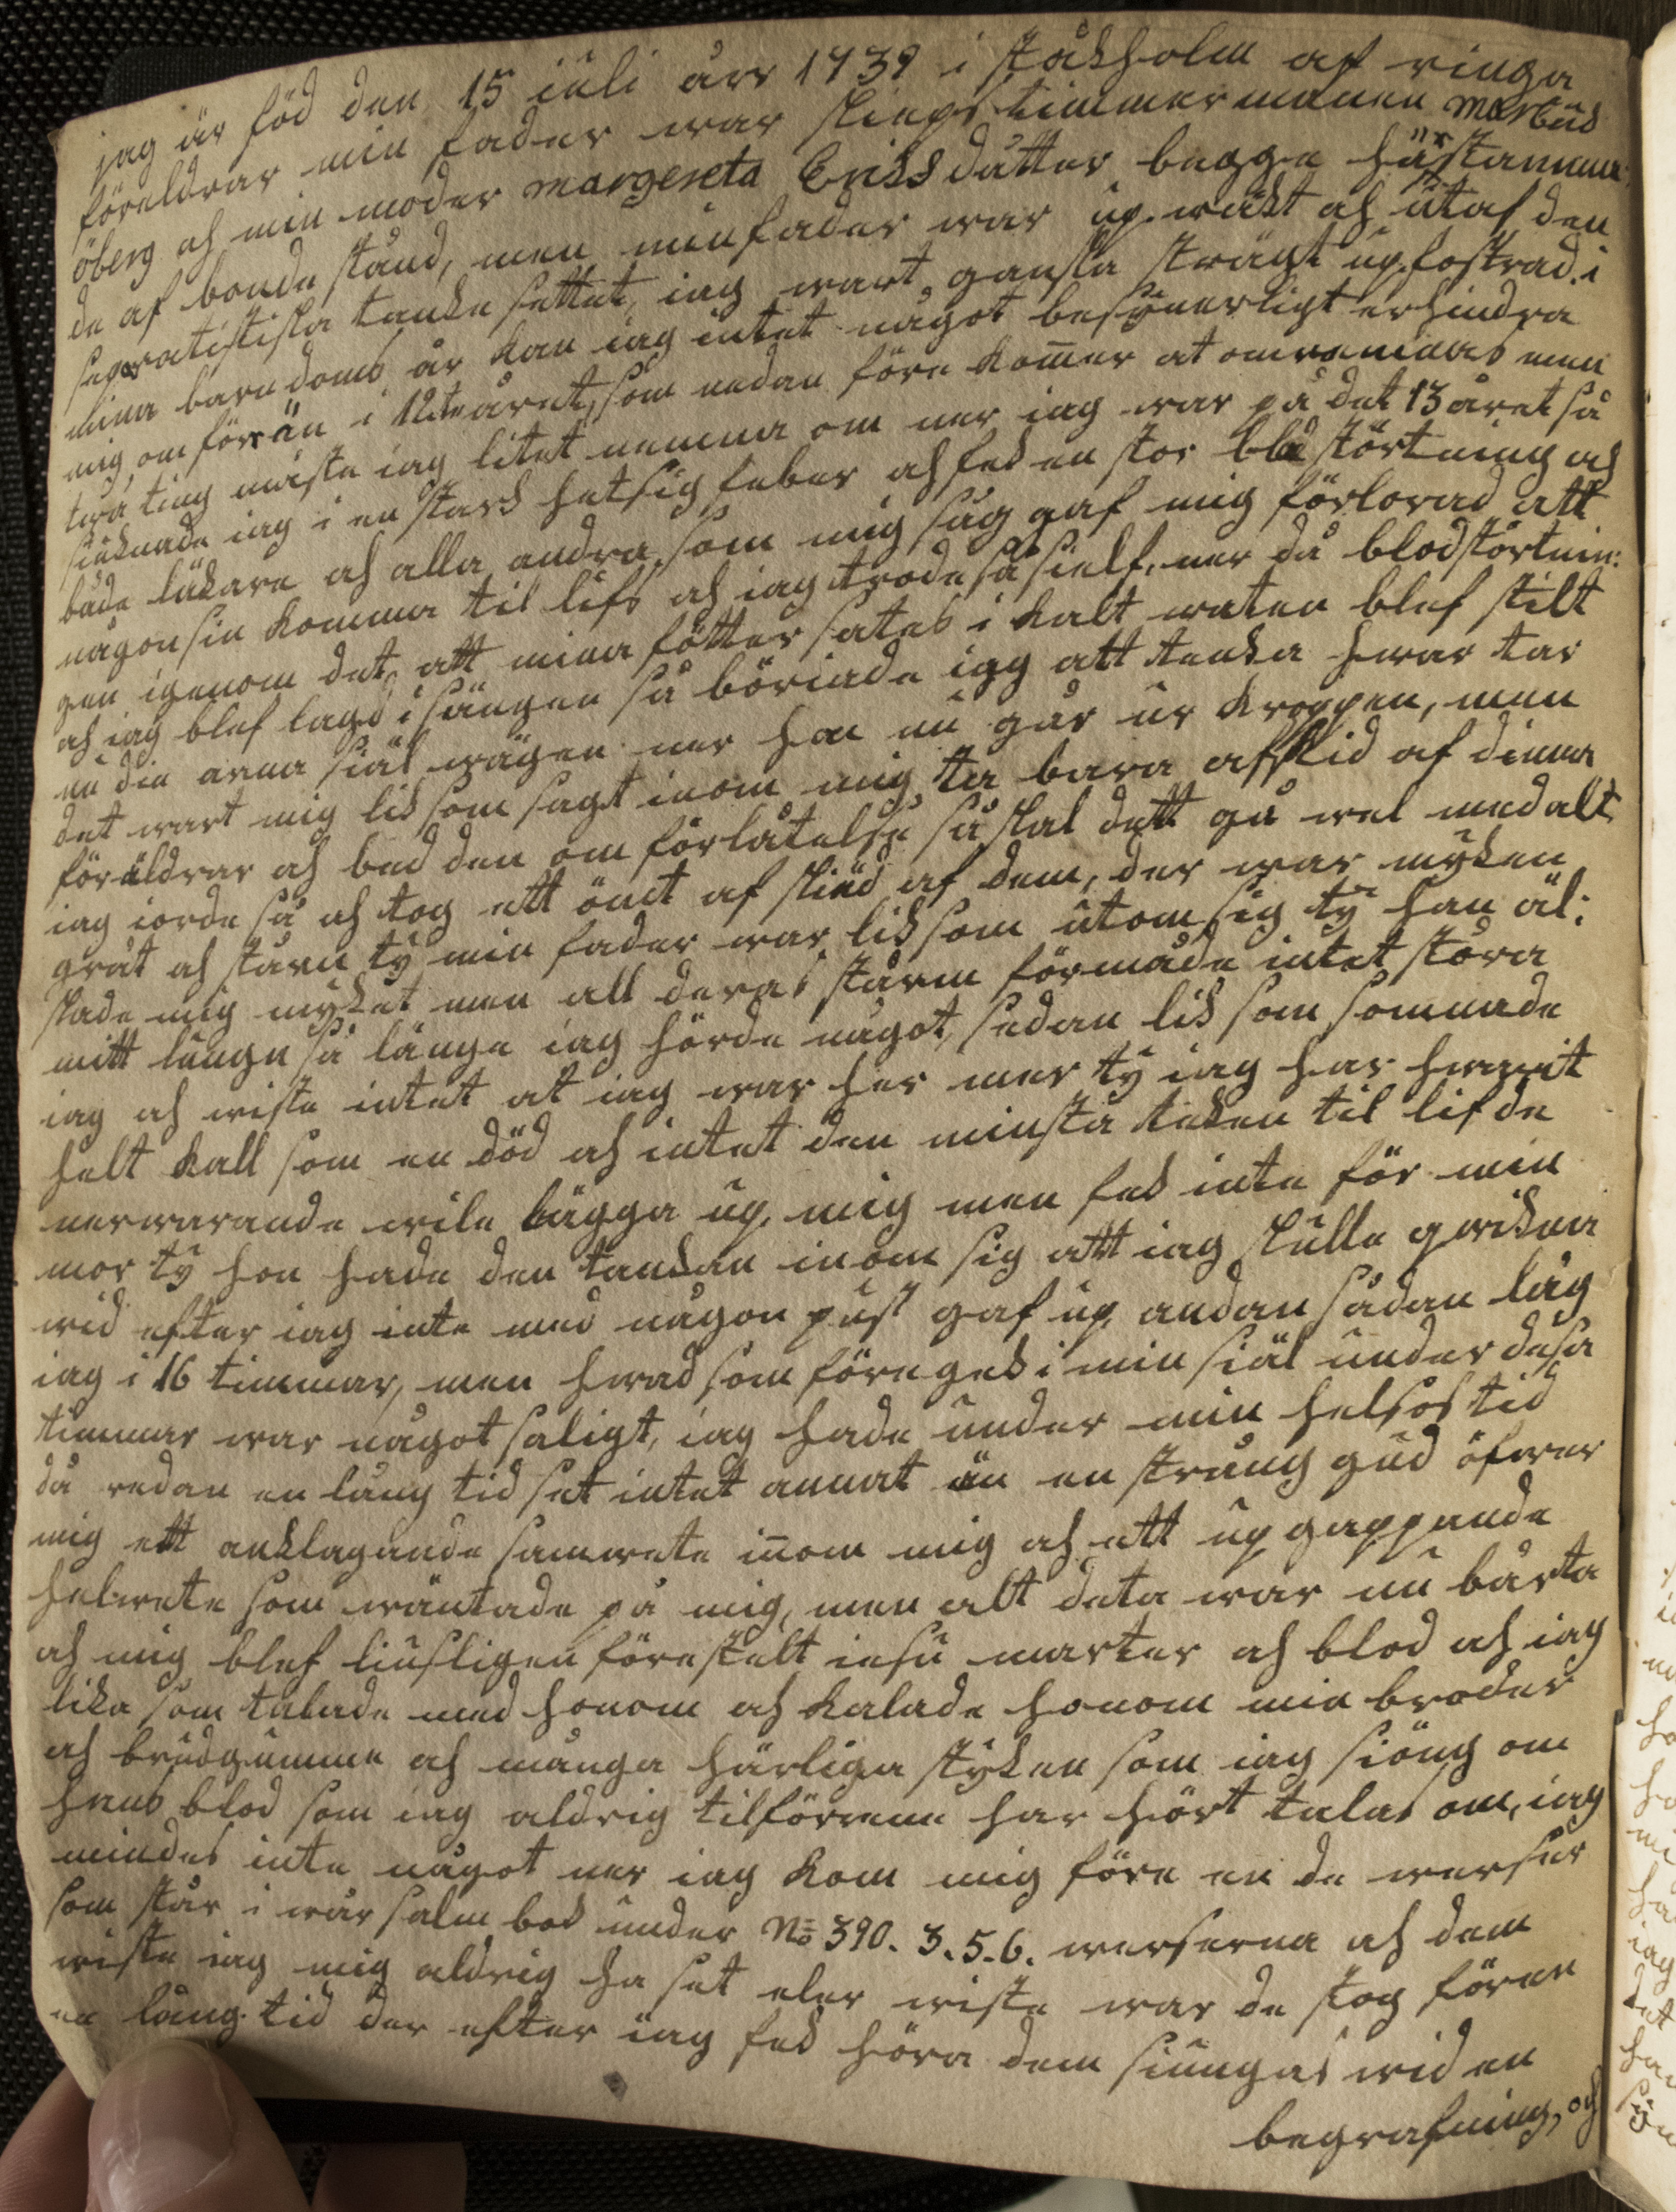 jag är föd den 15 iuli årr 1739 i ståkholm af ringa
föreldrar min fader war skieps timmermannen marcus
öberg ah min moder margereta Erisdåtter begge härstamma:
de af bonde stånd, men min fader war up wäkt ah utaf den
sepratistiska tanke settet, iag wart ganska strägt up fostrad, i
mina barndoms år kan iag intet något besynerligt erhindra
mig om förrän i 12te året, som nedan före komer at omrömmas men
twå ting måste iag litet nemna om ner iag war på det 13 året så
siuknade iag i en stark hetsig feber ah fek en stor blod störtning ah
både läkare ah alla andra som mig såg gaf mig förlorad att
någonsin komma til lifs ah iag trode så sielf, ner då blodstörtnin:
gen igenom det, att mina fötter sates i kalt waten blef stilt
ah iag blef lagd i sängen så böriade iag att tenka hwar tar
nu din arma siäl wägen ner hon nu går ur kroppen, men
det wart mig lik som sagt inom mig ta bara afskid af dinna
föräldrar ah bed den om förlåtelse så skal dett gå wel med alt
iag iorde så ah tog ett ömt af skied af dem, der war myken
gråt ah starm ty min fader war lik som utom sig ty han äl:
skade mig myket men all deras starm förmåde intet störa
mitt lungn så länge iag hörde något, sedan lik som somnade
iag ah wiste intet at iag war her mer ty iag har hwarit
helt kall som en död ah intet den minsta teken til lif de
nerwarande wile lägga up mig men fek inte för min
mor ty hon hade den tankan inom sig att iag skulle qwikna
wid efter iag inte med någon pust gaf up andan sådan låg
iag i 16 timmar, men hwad som föregek i min siäl under desa
timmar war något saligt, iag hade under min helsos tid
då redan en lång tid set intet annat än en sträng gud öfwer
mig ett anklagande samwete inom mig ah ett up gappande
helwete som wäntade på mig, men alt deta war nu bårta
ah mig blef liufligen förestelt iesu marter ah blod ah iag
lika som talade med honom ah kalade honom min broder
ah brudgumme ah många härliga styken som iag siöng om
hans blod som iag aldrig tilförenne har hört talas om, iag
mindes inte något ner iag kom mig före en de werser
som står i wår salm bok under No 390. 3. 5. 6. werserna ah dem
wiste iag mig aldrig ha set eler wiste war de stog fören
en lång tid der efter iag fek höra dem siungas wid en
begrafning, oh